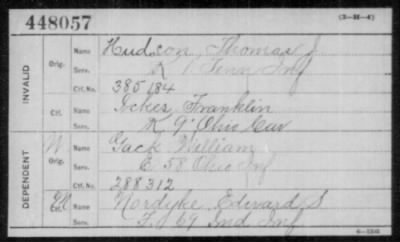 448057
(3-M-4)
INVALID
Orig.
Name
Hudson, Thomas J.
Serv.
K 1 Tenn Inf
Ctf. No.
385184
Ctf.
Name
Ickes Franklin
Serv.
K 9" Ohio Cav
DEPENDENT
W
Orig.
Name
Gack William
Serv.
E 58 Ohio Inf
Ctf. No.
288312
Ctf.
Name
Nordyke, Edward S
Serv.
F 69 Ind Inf